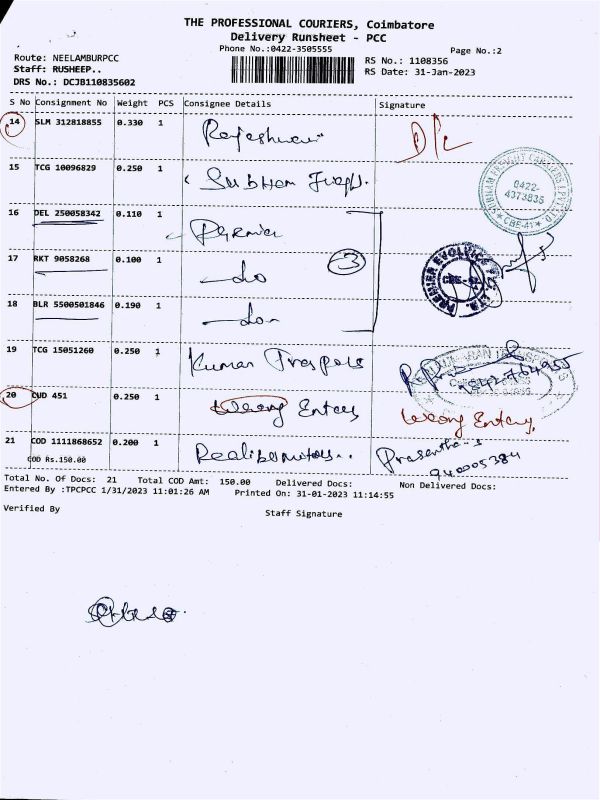 THE PROFESSIONAL COURIERS, Coimbatore
Delivery Runsheet - PCC
Phone No.:0422-3505555
Page No.:2
Route: NEELAMBURPCC
Staff: RUSHEEP..
DRS No.: DCJB110835602
RS No.: 1108356
RS Date: 31-Jan-2023
S No Consignment No Weight PCS Consignee Details Signature
14 SLM 312818855 0.330 1 Rajeshwari D/L
15 TCG 10096829 0.250 1 Subham
0422-
4373835
CBE-41
16 DEL 250058342 0.110 1 Premier
17 RKT 9058268 0.100 1 do 3
18 BLR 5500501846 0.190 1 do
19 TCG 15051260 0.250 1 Kumaran
20 CUD 451 0.250 1 Wrong Entry Wrong Entry
21 COD 1111868652 0.200 1 Prasanth
COD Rs.150.00
Total No. Of Docs: 21 Total COD Amt: 150.00 Delivered Docs: Non Delivered Docs:
Entered By :TPCPCC 1/31/2023 11:01:26 AM Printed On: 31-01-2023 11:14:55
Verified By
Staff Signature